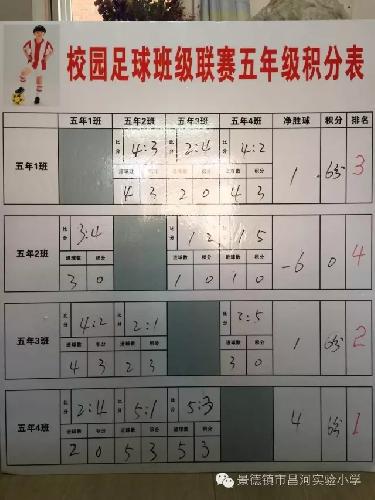 校园足球班级联赛五年级积分表
五年1班 五年2班 五年3班 五年4班 净胜球 积分 排名
五年1班 比分 4:3 比分 2:4 比分 4:2 1 6分 3
进球数 积分 进球数 积分 进球数 积分
4 3 2 0 4 3
五年2班 比分 3:4 比分 1 2 比分 1 5 -6 0 4
进球数 积分 进球数 积分 进球数 积分
3 0 1 0 1 0
五年3班 比分 4:2 比分 2:1 比分 3:5 1 6分 2
进球数 积分 进球数 积分 进球数 积分
4 3 2 3 3 0
五年4班 比分 2:4 比分 5:1 比分 5:3 4 6分 1
进球数 积分 进球数 积分 进球数 积分
2 0 5 3 5 3
景德镇市昌河实验小学